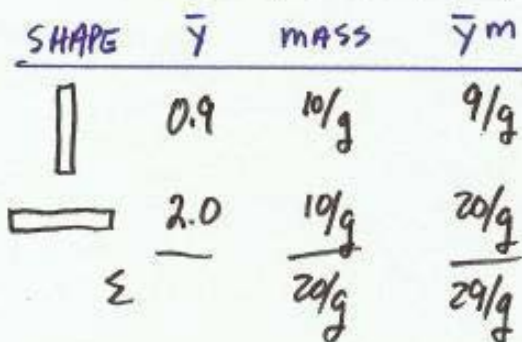 SHAPE ȳ mASS ȳm
0.9 10/g 9/g
2.0 10/g 20/g
Σ 20/g 29/g